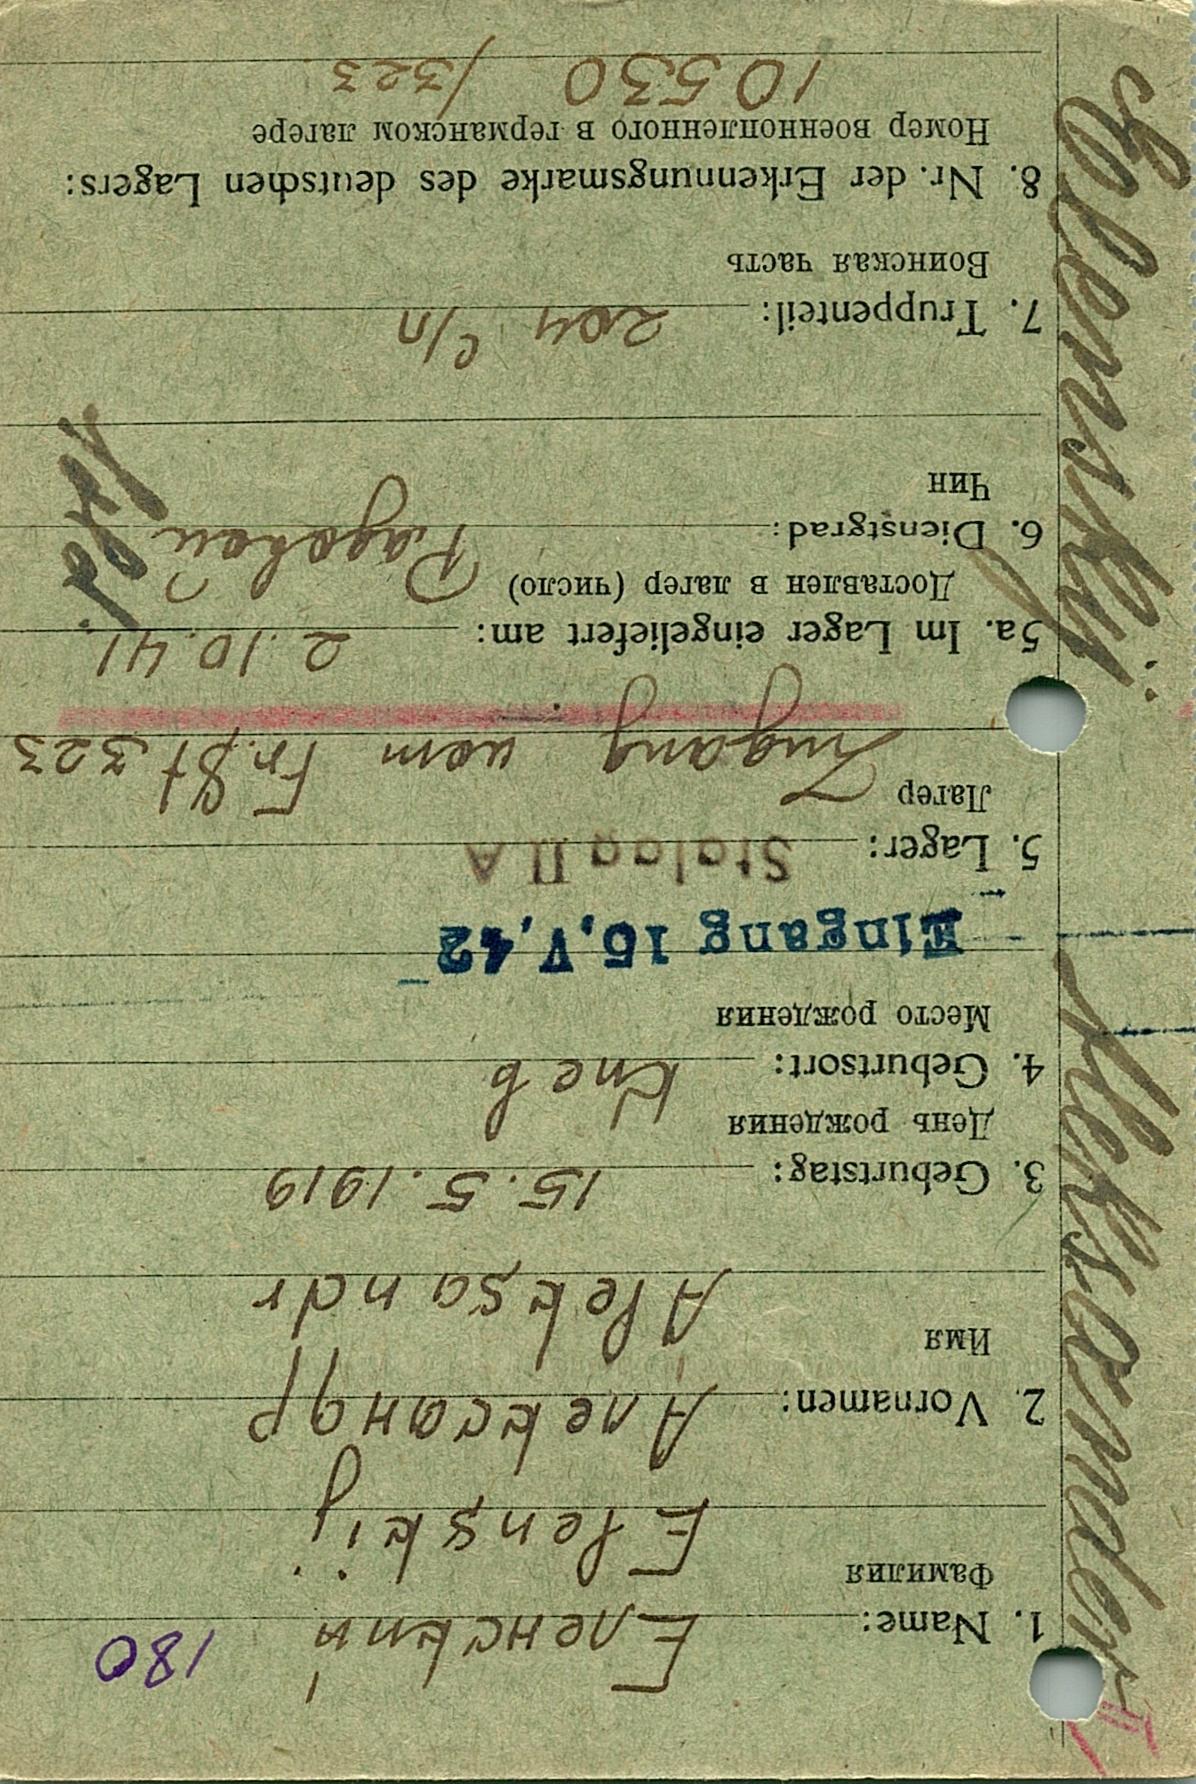 180
1. Name: Еленский
Фамилия
Elenskij
2. Vornamen: Александр
Имя
Aleksandr
3. Geburtstag: 15.5.1919
День рождения
4. Geburtsort: Киев
Место рождения
Eingang 15.V.42
5. Lager: Stalag II A
Лагер
Zugang vom Fr.St 323
5a. Im Lager eingeliefert am: 2.10.41
Доставлен в лагер (число)
6. Dienstgrad: Рядовой
Чин
7. Truppenteil: 204 с/п
Воинская часть
8. Nr. der Erkennungsmarke des deutschen Lagers:
Номер военнопленного в германском лагере
10530 /323
II
Aleksander